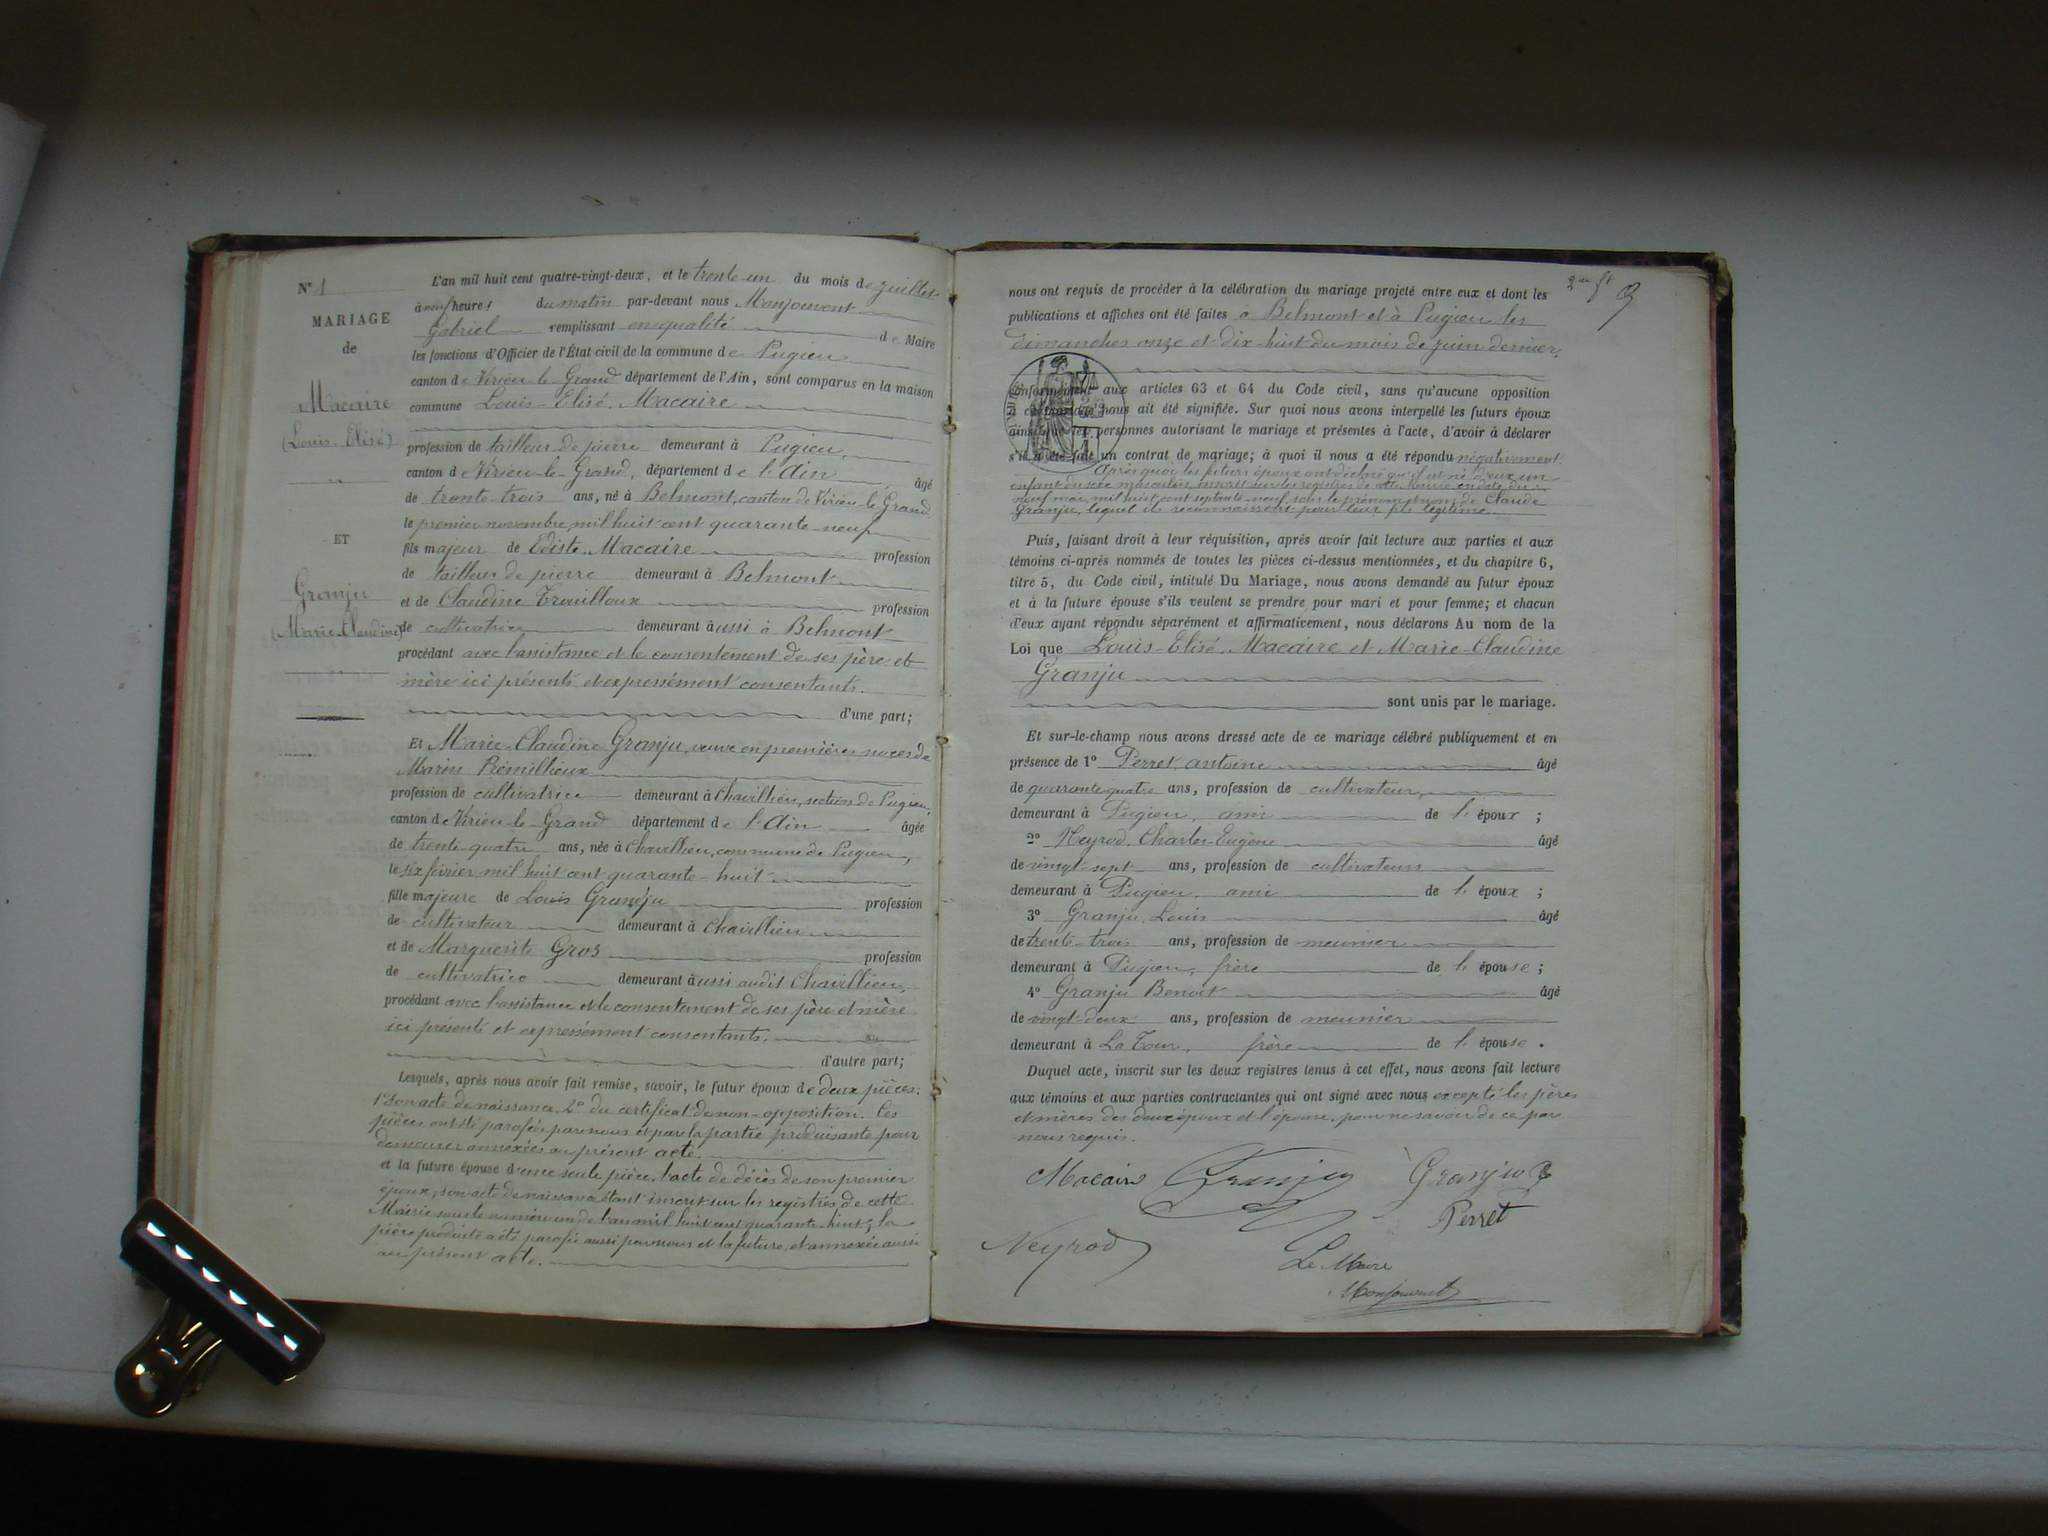 N° 1
MARIAGE
de
Macaire
(Louis-Elisé)
ET
Granju
(Marie-Claudine)
L'an mil huit cent quatre-vingt-deux, et le trente-un du mois de juillet
à neuf heures du matin par-devant nous Monjouvent
Gabriel remplissant en qualité de Maire
les fonctions d'Officier de l'État civil de la commune de Pugieu
canton de Virieu-le-Grand département de l'Ain, sont comparus en la maison
commune Louis-Elisé Macaire
profession de tailleur de pierre demeurant à Pugieu,
canton de Virieu-le-Grand, département de l'Ain, âgé
de trente-trois ans, né à Belmont, canton de Virieu-le-Grand
le premier novembre mil huit cent quarante-neuf
fils majeur de Ediste Macaire profession
de tailleur de pierre demeurant à Belmont
et de Claudine Trouilloux profession
de cultivatrice demeurant aussi à Belmont
procédant avec l'assistance et le consentement de ses père et
mère ici présents et expressément consentants.
d'une part;
Et Marie-Claudine Granju, veuve en premières noces de
Marin Prémillieux
profession de cultivatrice demeurant à Chavillieu, section de Pugieu,
canton de Virieu-le-Grand département de l'Ain âgée
de trente-quatre ans, née à Chavillieu, commune de Pugieu,
le six février mil huit cent quarante-huit
fille majeure de Louis Granju profession
de cultivateur demeurant à Chavillieu
et de Marguerite Gros profession
de cultivatrice demeurant aussi audit Chavillieu,
procédant avec l'assistance et le consentement de ses père et mère
ici présents et expressément consentants.
d'autre part;
Lesquels, après nous avoir fait remise, savoir, le futur époux de deux pièces:
1° son acte de naissance 2° du certificat de non-opposition. Ces
pièces ont été parafées par nous et par la partie produisante pour
demeurer annexées au présent acte.
et la future épouse d'une seule pièce, l'acte de décès de son premier
époux, son acte de naissance étant inscrit sur les registres de cette
Mairie sous le numéro un de l'an mil huit cent quarante-huit; la
pièce produite a été parafée aussi par nous et la future, et annexée aussi
au présent acte.
nous ont requis de procéder à la célébration du mariage projeté entre eux et dont les
publications et affiches ont été faites à Belmont et à Pugieu les
dimanches onze et dix-huit du mois de juin dernier,
conformément aux articles 63 et 64 du Code civil, sans qu'aucune opposition
à ce mariage nous ait été signifiée. Sur quoi nous avons interpellé les futurs époux
ainsi que les personnes autorisant le mariage et présentes à l'acte, d'avoir à déclarer
s'il a été fait un contrat de mariage; à quoi il nous a été répondu négativement
Après quoi les futurs époux ont déclaré qu'il est né d'eux un
enfant du sexe masculin, inscrit sur les registres de cette Mairie en date du
neuf mai mil huit cent septante-neuf, sous le prénom et nom de Claude
Granju, lequel ils reconnaissent pour leur fils légitime.
Puis, faisant droit à leur réquisition, après avoir fait lecture aux parties et aux
témoins ci-après nommés de toutes les pièces ci-dessus mentionnées, et du chapitre 6,
titre 5, du Code civil, intitulé Du Mariage, nous avons demandé au futur époux
et à la future épouse s'ils veulent se prendre pour mari et pour femme; et chacun
d'eux ayant répondu séparément et affirmativement, nous déclarons Au nom de la
Loi que Louis-Elisé Macaire et Marie-Claudine
Granju
sont unis par le mariage.
Et sur-le-champ nous avons dressé acte de ce mariage célébré publiquement et en
présence de 1° Perret, antoine âgé
de quarante quatre ans, profession de cultivateur,
demeurant à Pugieu, ami de l'époux;
2° Neyrod, Charles-Eugène âgé
de vingt-sept ans, profession de cultivateurs
demeurant à Pugieu, ami de l'époux;
3° Granju, Louis âgé
de trente-trois ans, profession de meunier
demeurant à Pugieu, frère de l'épouse;
4° Granju Benoît âgé
de vingt-deux ans, profession de meunier
demeurant à La Tour, frère de l'épouse.
Duquel acte, inscrit sur les deux registres tenus à cet effet, nous avons fait lecture
aux témoins et aux parties contractantes qui ont signé avec nous excepté les pères
et mères des deux époux et l'épouse, pour ne savoir de ce par
nous requis.
Macaire Granju Granju B
Perret
Neyrod
Le Maire
Monjouvent